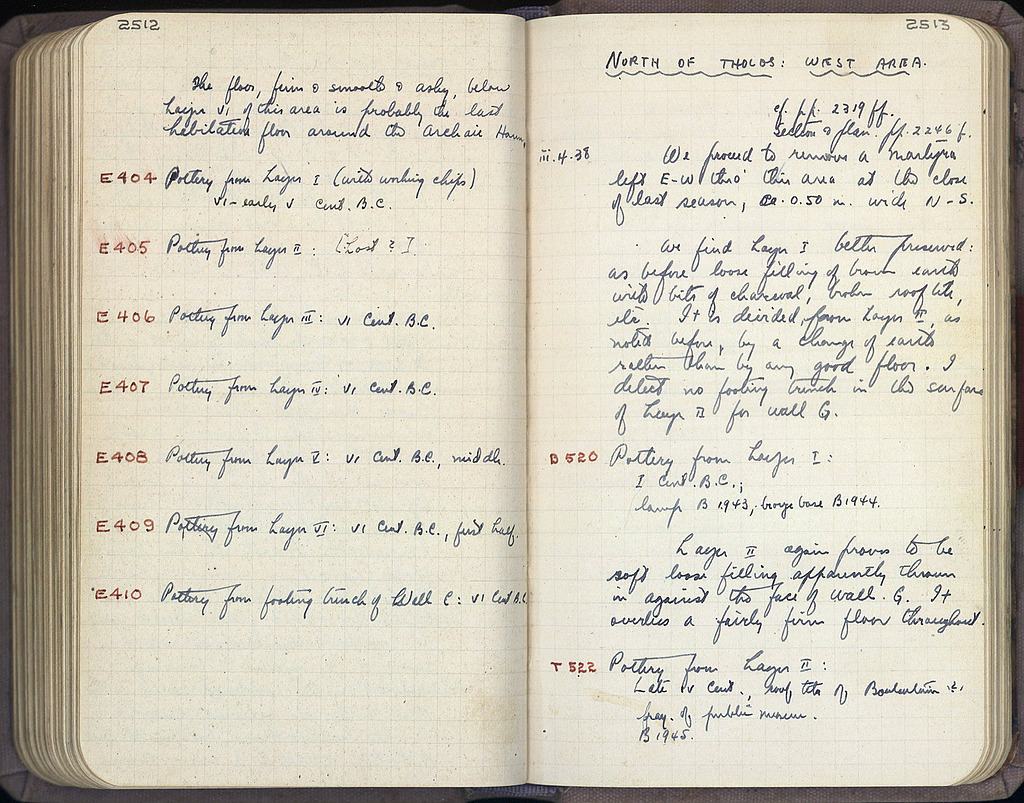 2512
The floor, firm & smooth & ashy, below
Layer VI of this area is probably the last
habitation floor around the Archaic House.
E 404 Pottery from Layer I (with working chips)
VI - early V Cent. B.C.
E 405 Pottery from Layer II: [Lost? ]
E 406 Pottery from Layer III: VI Cent. B.C.
E 407 Pottery from Layer IV: VI Cent. B.C.
E 408 Pottery from Layer V: VI Cent. B.C., middle.
E 409 Pottery from Layer VI: VI Cent. B.C., first half.
E 410 Pottery from footing trench of Wall C: VI Cent B.C.
2513
NORTH OF THOLOS: WEST AREA.
cf. pp. 2319 ff.
Section & plan. pp. 2246 f.
III.4.38 We proceed to remove a martyra
left E-W thro' this area at the close
of last season, ca. 0.50 m. wide N-S.
We find Layer I better preserved:
as before loose filling of brown earth
with bits of charcoal, broken roof tile,
etc. It is divided from Layer II, as
noted before, by a change of earth
rather than by any good floor. I
detect no footing trench in the surface
of Layer II for wall G.
B 520 Pottery from Layer I:
I Cent. B.C.;
lamp B 1943, bronze base B 1944.
Layer II again proves to be
soft loose filling apparently thrown
in against the face of wall G. It
overlies a fairly firm floor throughout.
T 522 Pottery from Layer II:
Late IV Cent., roof tile of
frag. of public
B 1945.